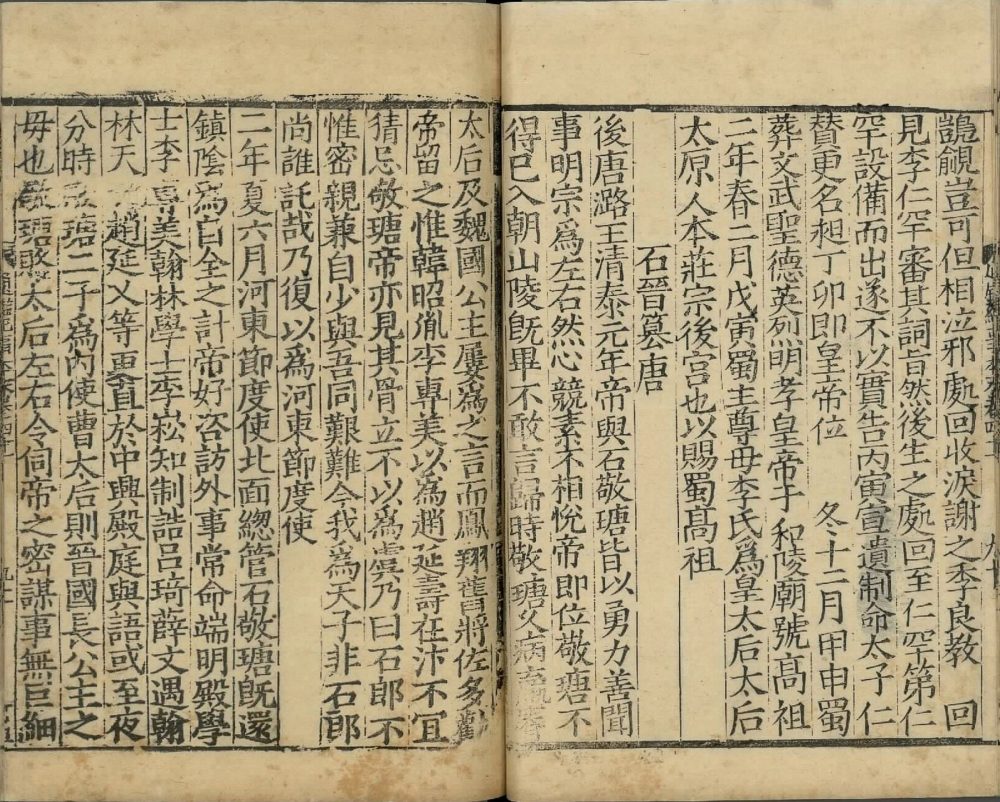 覬覦豈可但相泣邪處回收淚謝之季良教 回
見李仁罕審其詞旨然後生之處回至仁罕第仁
罕設備而出遂不以實告丙寅宣遺制命太子仁
贊更名昶丁卯即皇帝位 冬十二月甲申蜀
葬文武聖德英烈明孝皇帝于和陵廟號高祖
二年春二月戊寅蜀主尊母李氏爲皇太后太后
太原人本莊宗後宮也以賜蜀高祖
石晉篡唐
後唐潞王清泰元年帝與石敬瑭皆以勇力善鬬
事明宗爲左右然心競素不相悅帝即位敬瑭不
得已入朝山陵旣畢不敢言歸時敬瑭久病
太后及魏國公主屢爲之言而鳳翔舊將佐多勸
帝留之惟韓昭胤李專美以爲趙延壽在汴不宜
猜忌敬瑭帝亦見其骨立不以爲虞乃曰石郎不
惟密親兼自少與吾同艱難今我爲天子非石郎
尚誰託哉乃復以爲河東節度使
二年夏六月河東節度使北面緫管石敬瑭旣還
鎮陰爲自全之計帝好咨訪外事常命端明殿學
士李專美翰林學士李崧知制誥呂琦薛文遇翰
林天 趙延乂等更直於中興殿庭與語或至夜
分時 瑭二子爲內使曹太后則晉國長公主之
母也敬瑭賂太后左右令伺帝之密謀事無巨細